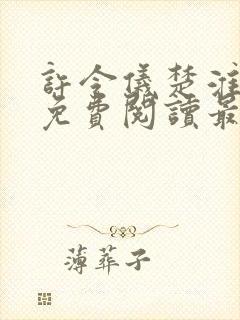 許令儀楚淮
免費閱讀最
薄葬子